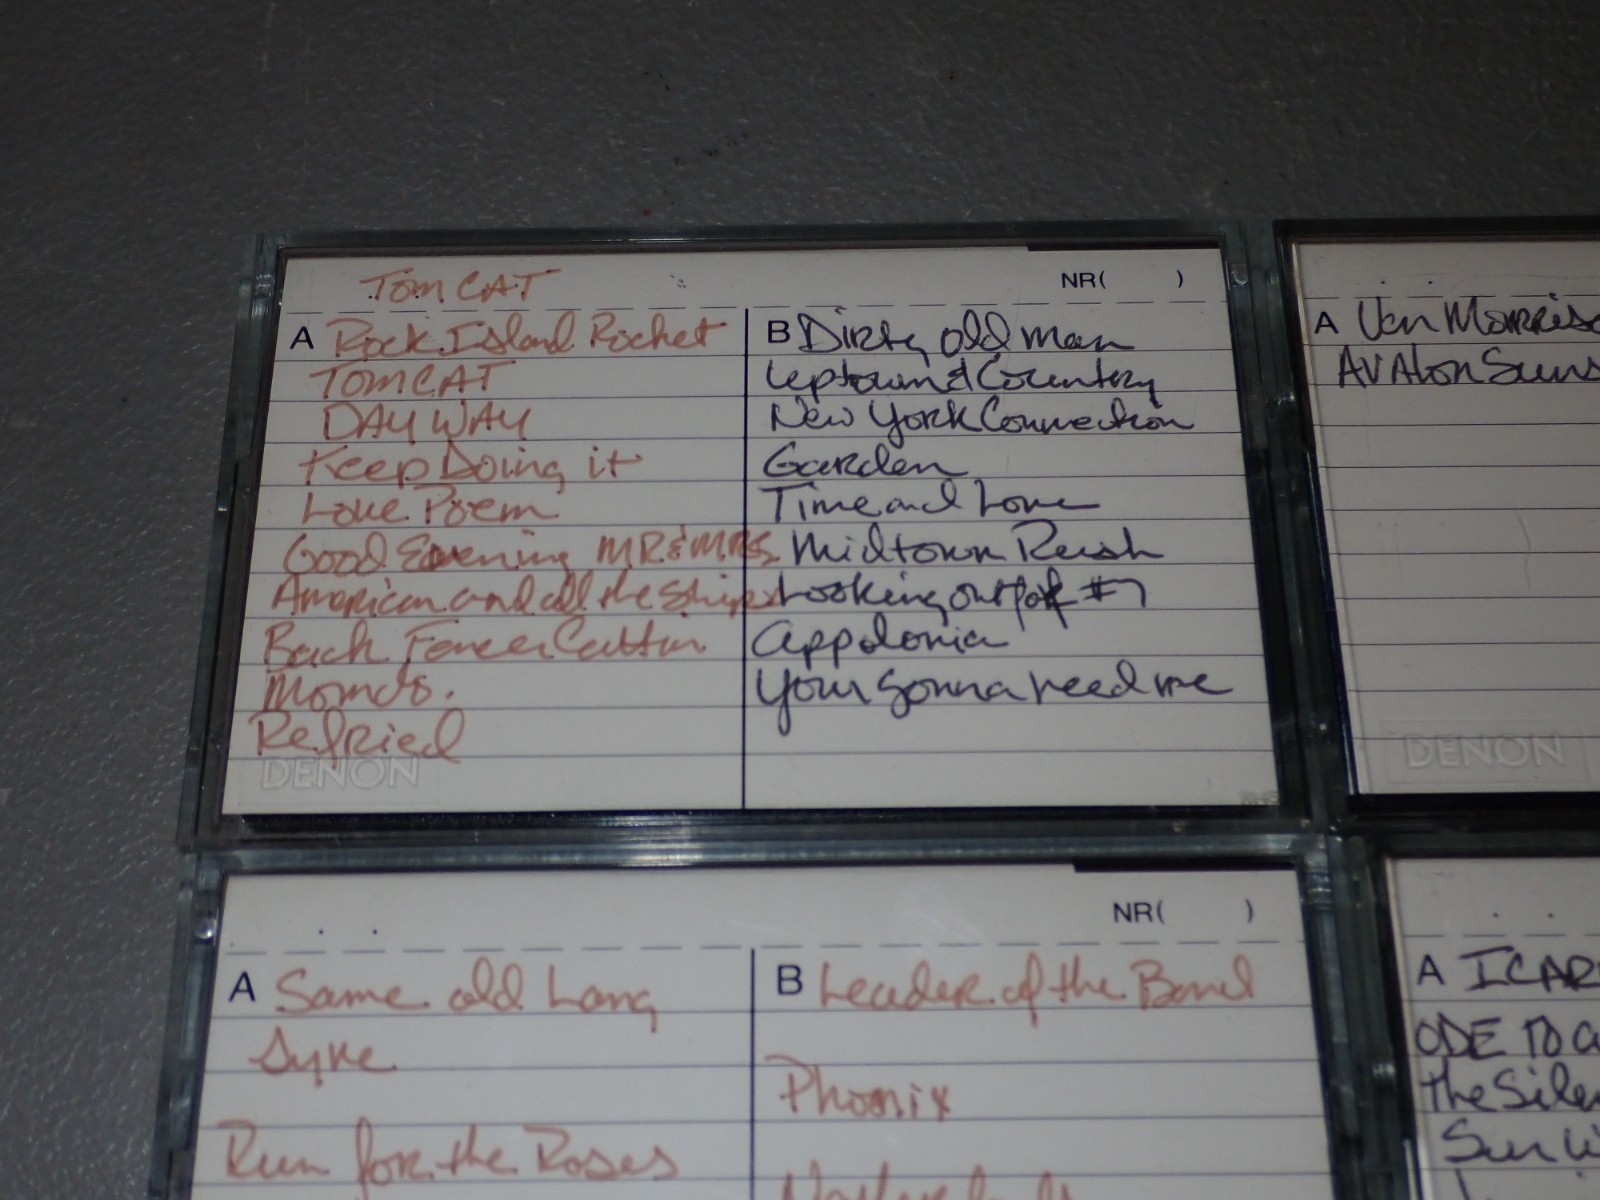 TOM CAT
NR( )
A Rock Island Rocket
TOMCAT
DAY WAY
Keep Doing it
Love Poem
Good Evening MR & MRS.
American and all the Ships
Back Fence Cattin
Momds.
Refried
DENON
B Dirty old man
Uptown & Country
New York Connection
Garden
Time and Love
Midtown Rush
Looking out for #7
appolonia
Your gonna need me
A Van Morriso
AVAlon Suns
DENON
NR( )
A Same old Lang
Syne
Run for the Roses
B Leader of the Band
Phonix
A ICAR
ODE TO
the Silen
Sun